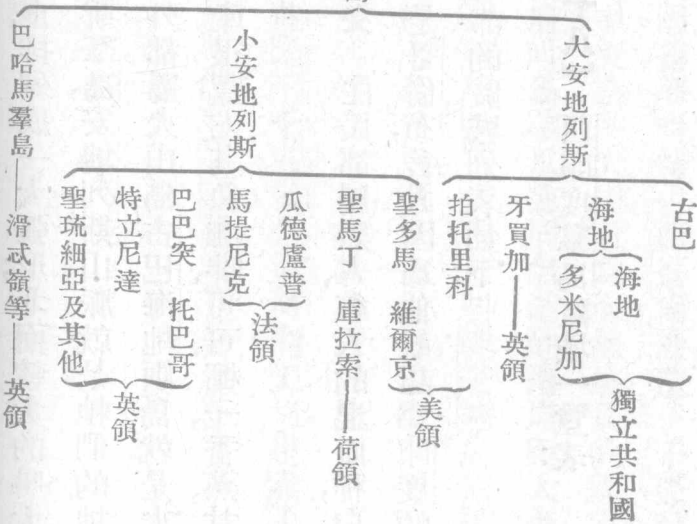 大安地列斯
古巴
海地
海地
多米尼加
獨立共和國
牙買加——英領
拍托里科
小安地列斯
聖多馬 維爾京
美領
聖馬丁 庫拉索——荷領
瓜德盧普
馬提尼克
法領
巴巴突 托巴哥
特立尼達
聖琉細亞及其他
英領
巴哈馬羣島——滑忒嶺等——英領